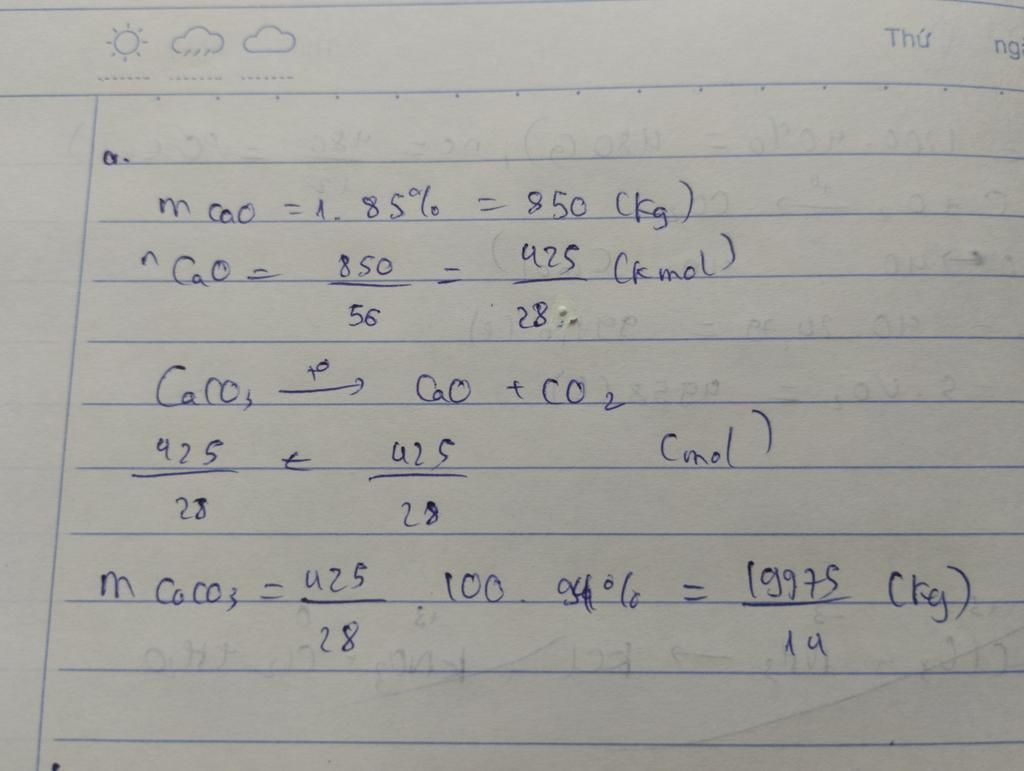 Thứ ng
a.
m CaO = 1. 85% = 850 (kg)
n CaO = 850/56 = 425/28 (kmol)
CaCO₃ –t°→ CaO + CO₂
425/28 ← 425/28 (mol)
m CaCO₃ = 425/28 . 100 . 94% = 19975/14 (kg)